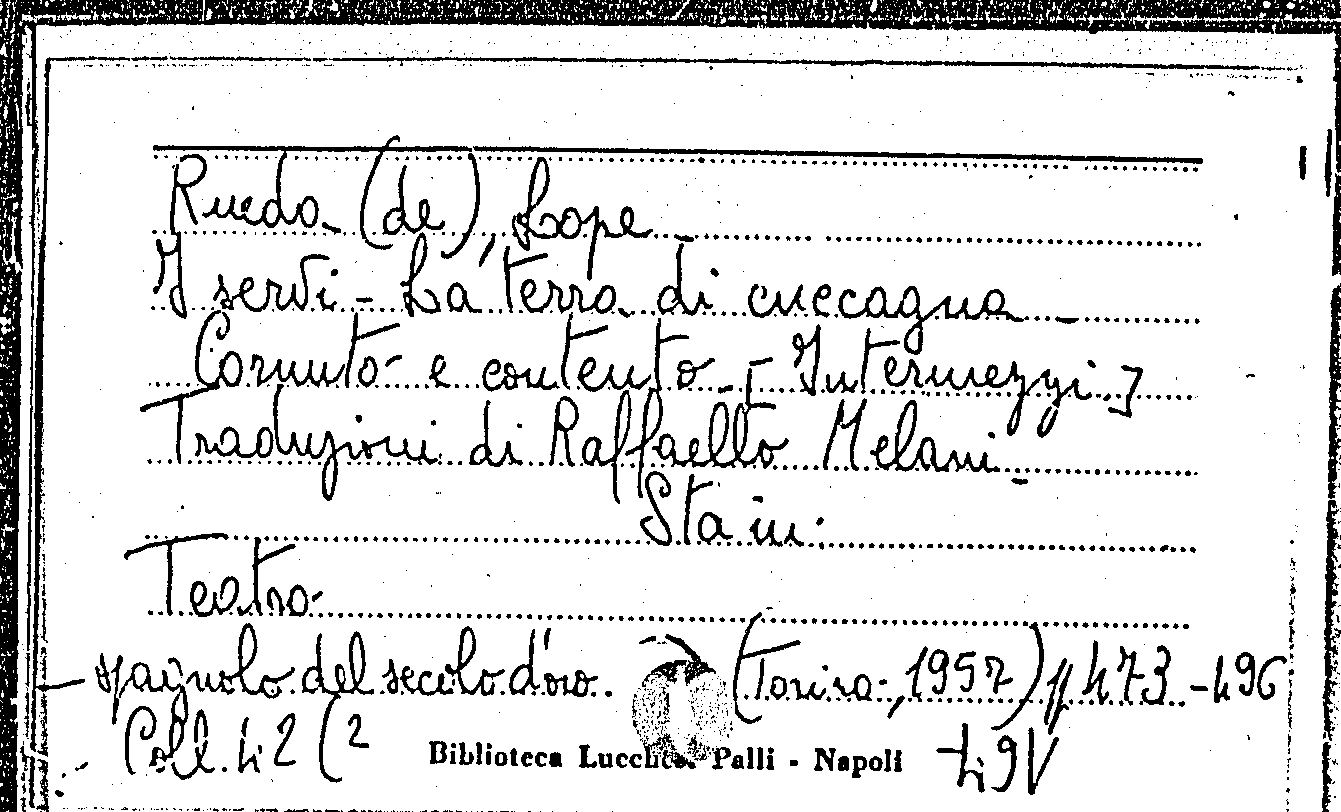 Rueda (de), Lope
I servi - La terra di cuccagna -
Cornuto e contento - [Intermezzi.]
Traduzioni di Raffaello Melani -
Sta in:
Teatro
spagnolo del secolo d'oro. (Torino, 1957) pp 473-496
Coll. 42 (2
Biblioteca Lucchesi Palli - Napoli